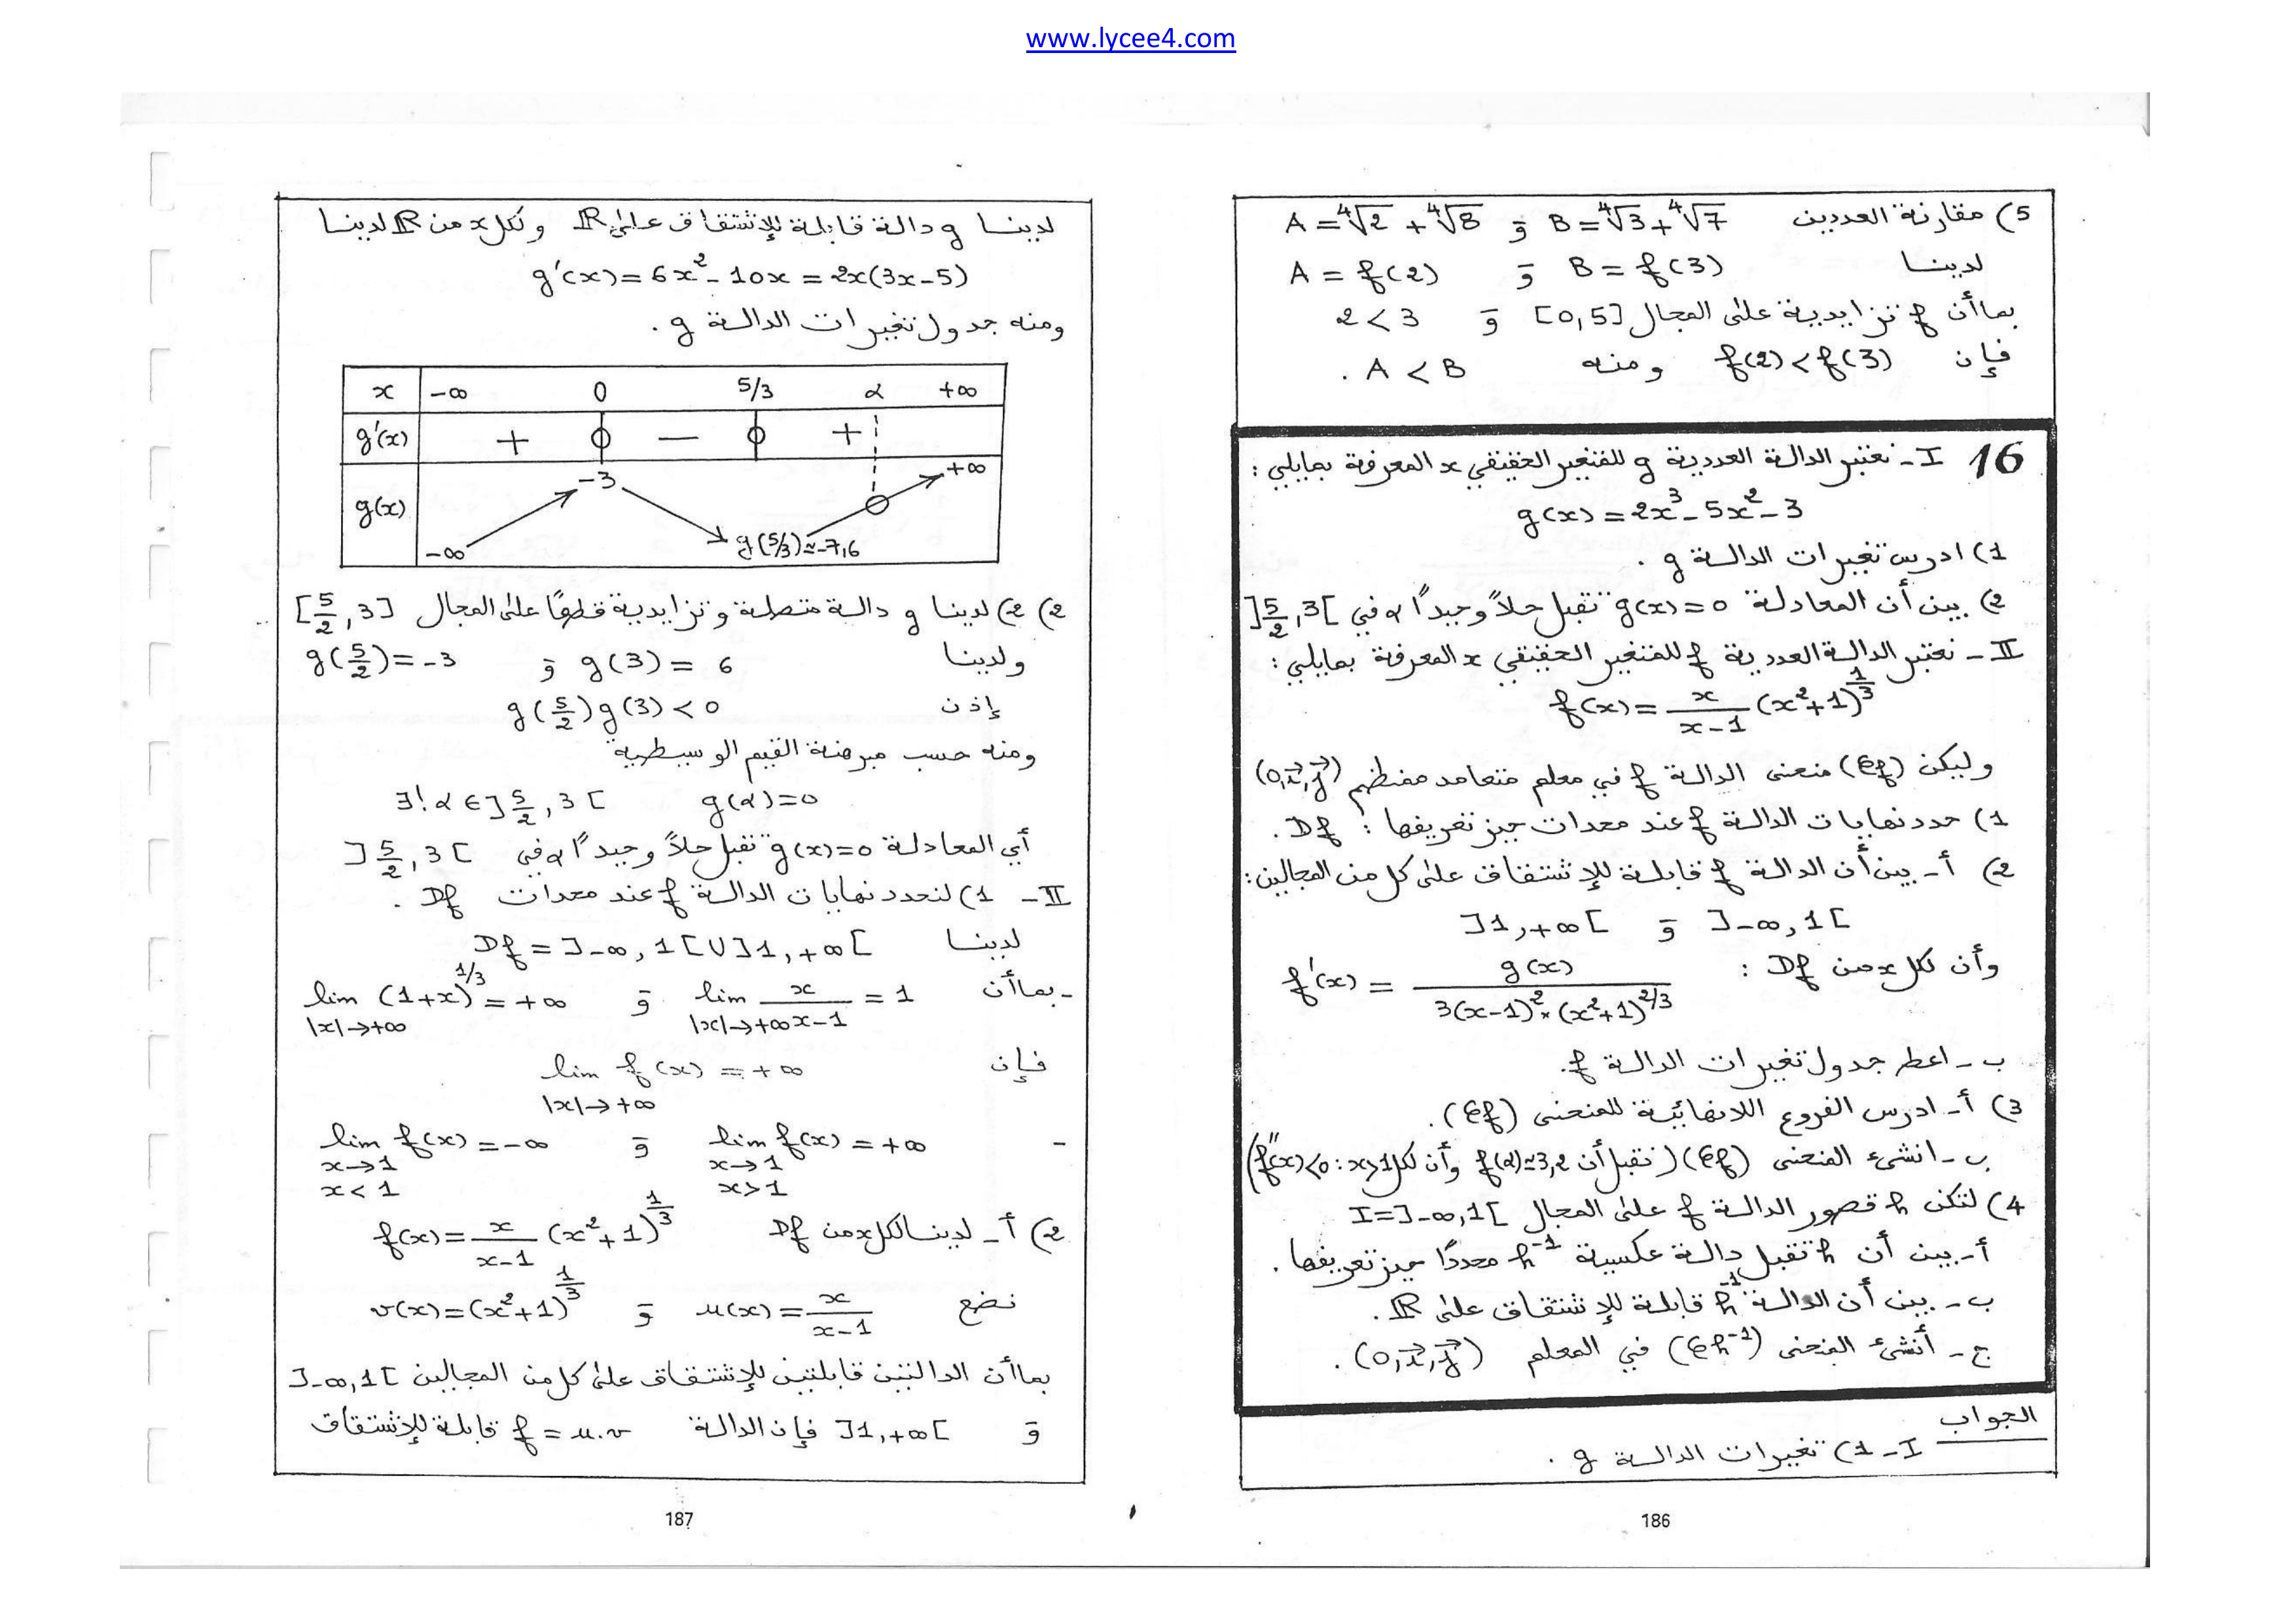 www.lycee4.com
5) مقارنة العددين A = ⁴√2 + ⁴√8 و B = ⁴√3 + ⁴√7
لدينا B = f(3) و A = f(2)
بما أن f تزايدية على المجال [0,5] و 2 < 3
فإن f(2) < f(3) ومنه A < B .
16 I - نعتبر الدالة العددية g للمتغير الحقيقي x المعرفة بمايلي :
g(x) = 2x³ - 5x² - 3
1) ادرس تغيرات الدالة g .
2) بين أن المعادلة g(x) = 0 تقبل حلاً وحيداً α في ]5/2 , 3[
II - نعتبر الدالة العددية f للمتغير الحقيقي x المعرفة بمايلي :
f(x) = x/(x-1) (x²+1)^(1/3)
وليكن (Cf) منحنى الدالة f في معلم متعامد ممنظم (O,i⃗,j⃗)
1) حدد نهايات الدالة f عند محدات حيز تعريفها : Df .
2) أ - بين أن الدالة f قابلة للإشتقاق على كل من المجالين :
]-∞,1[ و ]1,+∞[
وأن لكل x من Df : f'(x) = g(x) / (3(x-1)² × (x²+1)^(2/3))
ب - اعط جدول تغيرات الدالة f.
3) أ - ادرس الفروع اللانهائية للمنحنى (Cf).
ب - انشىء المنحنى (Cf) (نقبل أن f(α)≈3,2 وأن لكل x>1 : f"(x)<0)
4) لتكن h قصور الدالة f على المجال I = ]-∞,1[
أ - بين أن h تقبل دالة عكسية h⁻¹ محددًا حيز تعريفها .
ب - بين أن الدالة h⁻¹ قابلة للإشتقاق على ℝ.
ج - أنشئ المنحنى (Ch⁻¹) في المعلم (O,i⃗,j⃗) .
الجواب
I - 1) تغيرات الدالة g .
186
لدينا g دالة قابلة للإشتقاق على ℝ ولكل x من ℝ لدينا
g'(x) = 6x² - 10x = 2x(3x-5)
ومنه جدول تغيرات الدالة g .
x -∞ 0 5/3 α +∞
g'(x) + 0 - 0 +
g(x) -∞ -3 g(5/3)≈-7,6 +∞
2) 2) لدينا g دالة متصلة وتزايدية قطعًا على المجال [5/2 , 3]
ولدينا g(3) = 6 و g(5/2) = -3
إذن g(5/2) g(3) < 0
ومنه حسب مبرهنة القيم الوسيطية
∃! α ∈ ]5/2 , 3[ g(α) = 0
أي المعادلة g(x) = 0 تقبل حلاً وحيداً α في ]5/2 , 3[
II - 1) لنحدد نهايات الدالة f عند محدات Df .
لدينا Df = ]-∞,1[ ∪ ]1,+∞[
- بما أن lim |x|→+∞ x/(x-1) = 1 و lim |x|→+∞ (1+x)^(1/3) = +∞
فإن lim |x|→+∞ f(x) = +∞
- lim x→1 x>1 f(x) = +∞ و lim x→1 x<1 f(x) = -∞
2) أ - لدينا لكل x من Df f(x) = x/(x-1) (x²+1)^(1/3)
نضع u(x) = x/(x-1) و v(x) = (x²+1)^(1/3)
بما أن الدالتين قابلتين للإشتقاق على كل من المجالين ]-∞,1[
و ]1,+∞[ فإن الدالة f = u.v قابلة للإشتقاق
187